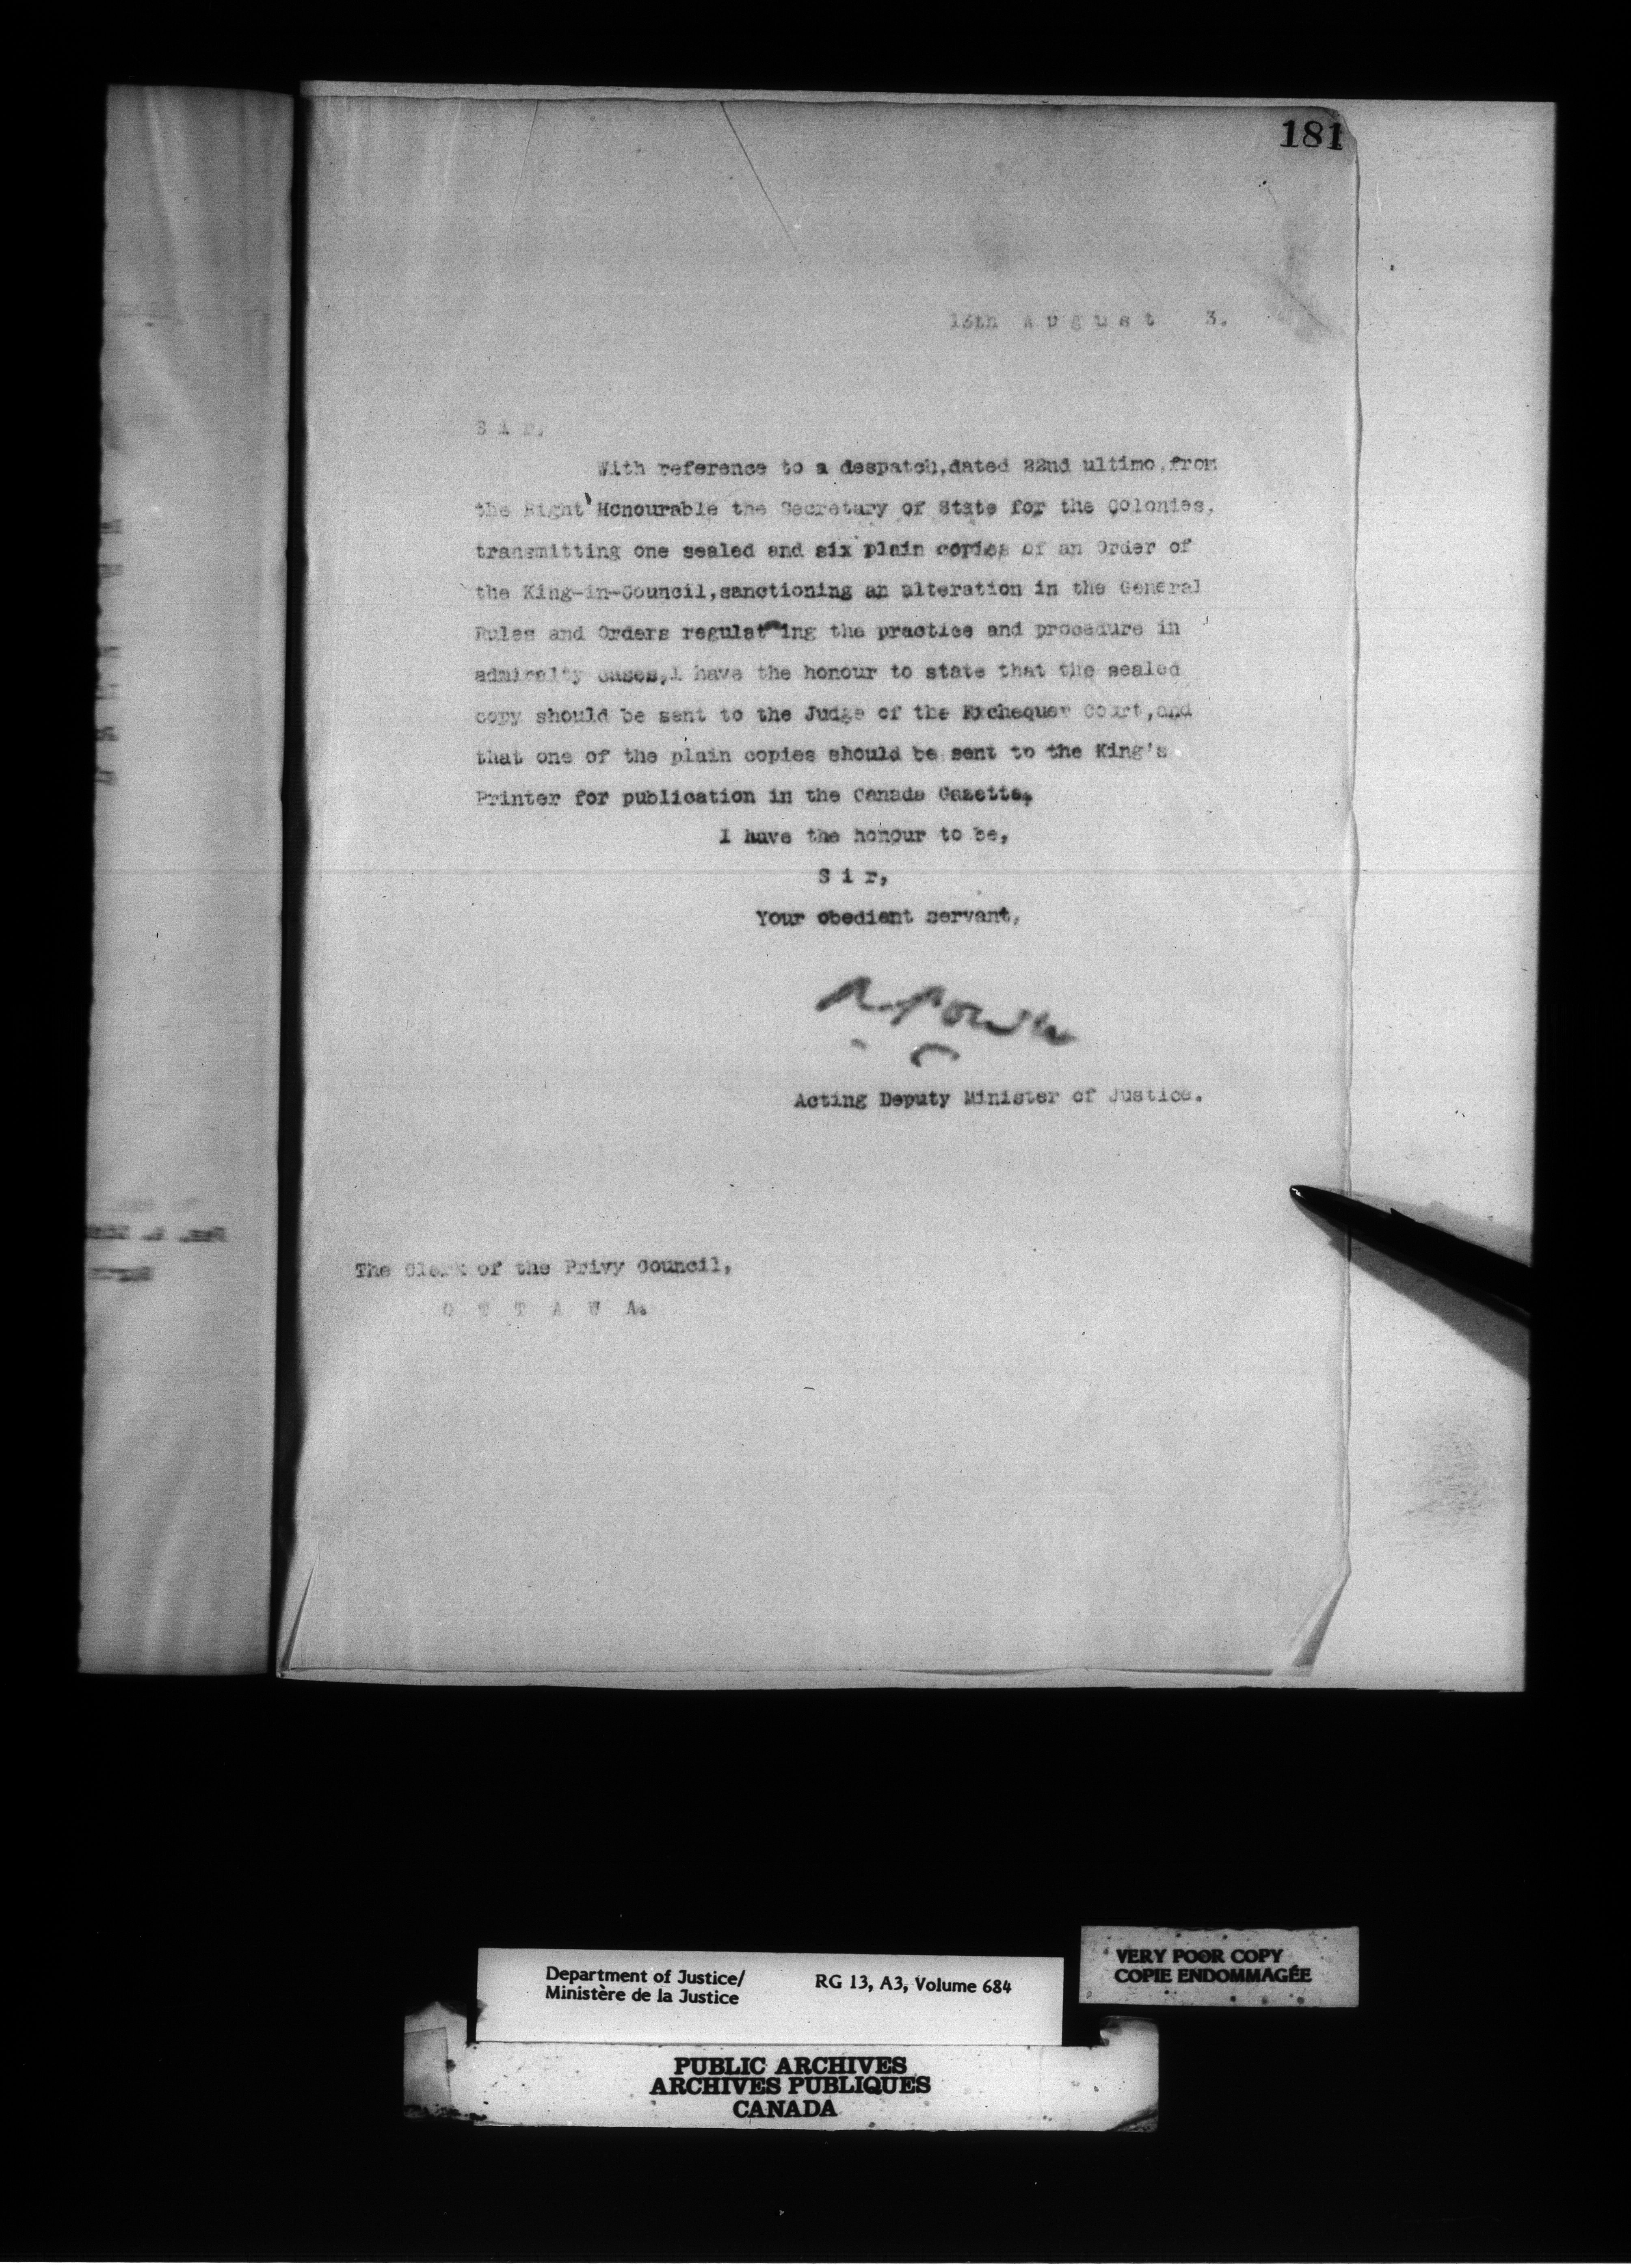 181
13th August 3.
Sir,
With reference to a despatch,dated 22nd ultimo,from
the Right Honourable the Secretary of State for the Colonies,
transmitting one sealed and six plain copies of an Order of
the King-in-Council,sanctioning an alteration in the General
Rules and Orders regulating the practice and procedure in
admiralty cases,I have the honour to state that the sealed
copy should be sent to the Judge of the Exchequer Court,and
that one of the plain copies should be sent to the King's
Printer for publication in the Canada Gazette.
I have the honour to be,
S i r,
Your obedient servant,
Acting Deputy Minister of Justice.
The Clerk of the Privy Council,
O T T A W A.
Department of Justice/ RG 13, A3, Volume 684
Ministère de la Justice
VERY POOR COPY
COPIE ENDOMMAGÉE
PUBLIC ARCHIVES
ARCHIVES PUBLIQUES
CANADA